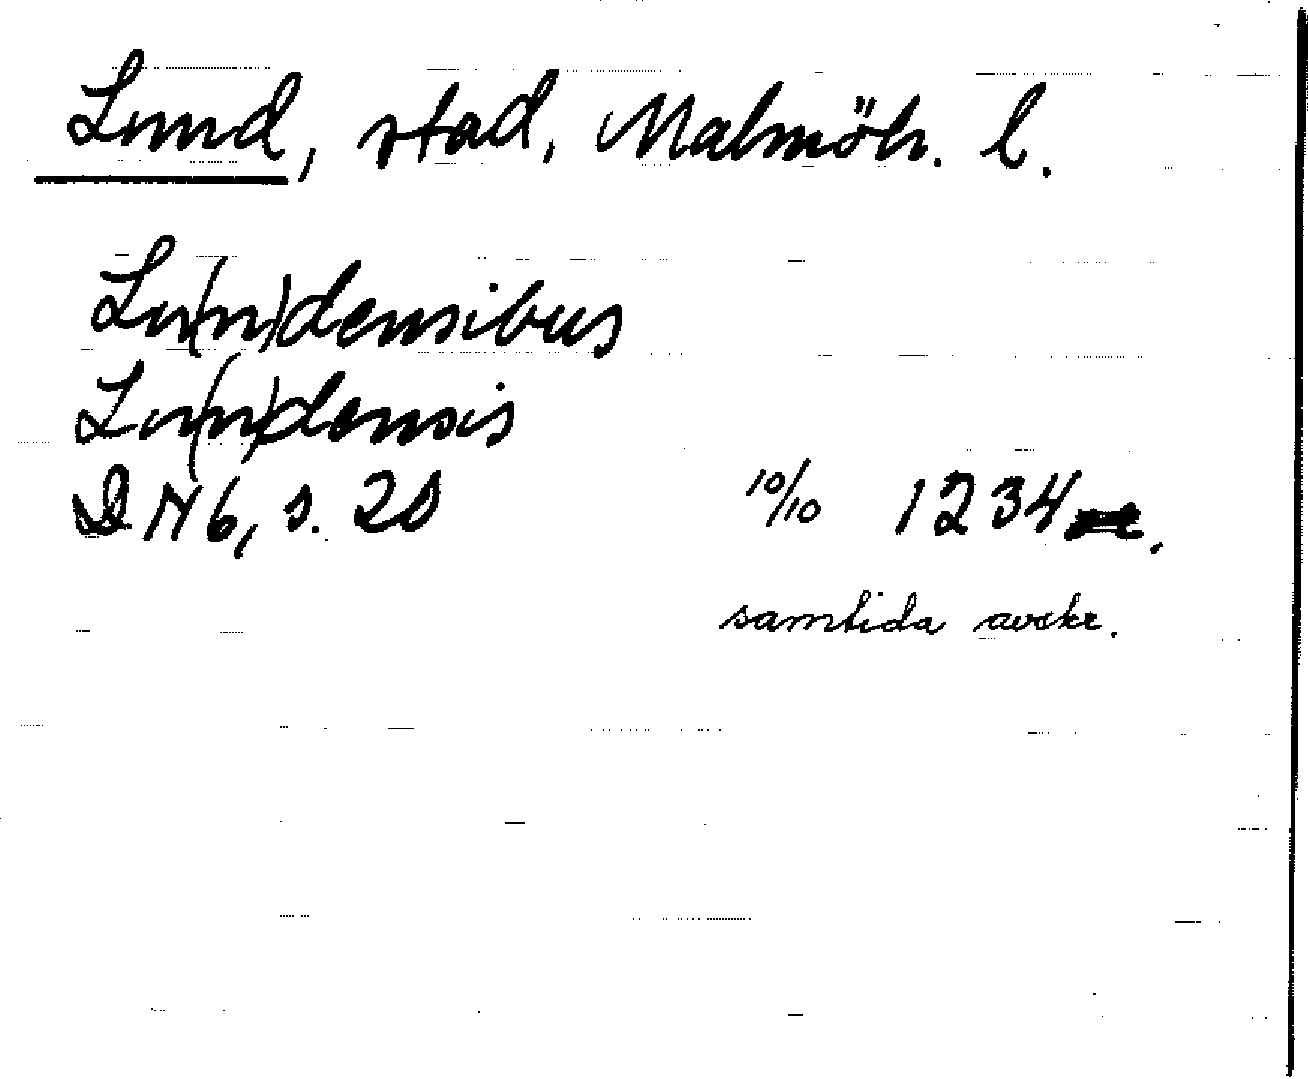 Lund, stad, Malmöh. l.
Lu(n)densibus
Lu(n)densis
DN 6, s. 20 10/10 1234.
samtida avskr.